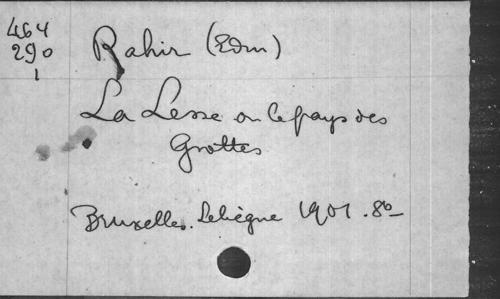 464
290
1
Rahir (Edm)
La Lesse ou le pays des
Grottes
Bruxelles. Lebègue 1901. 8º